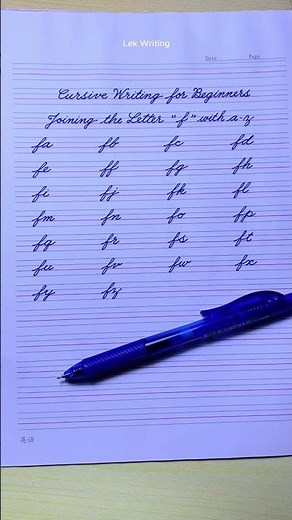 Lek Writing
Date Page
Cursive Writing for Beginners
Joining the Letter "f" with a-z
fa fb fc fd
fe ff fg fh
fi fj fk fl
fm fn fo fp
fq fr fs ft
fu fv fw fx
fy fz
英语